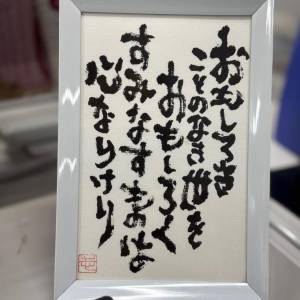 おもしろき
ことのなき世を
おもしろく
すみなすものは
心なりけり